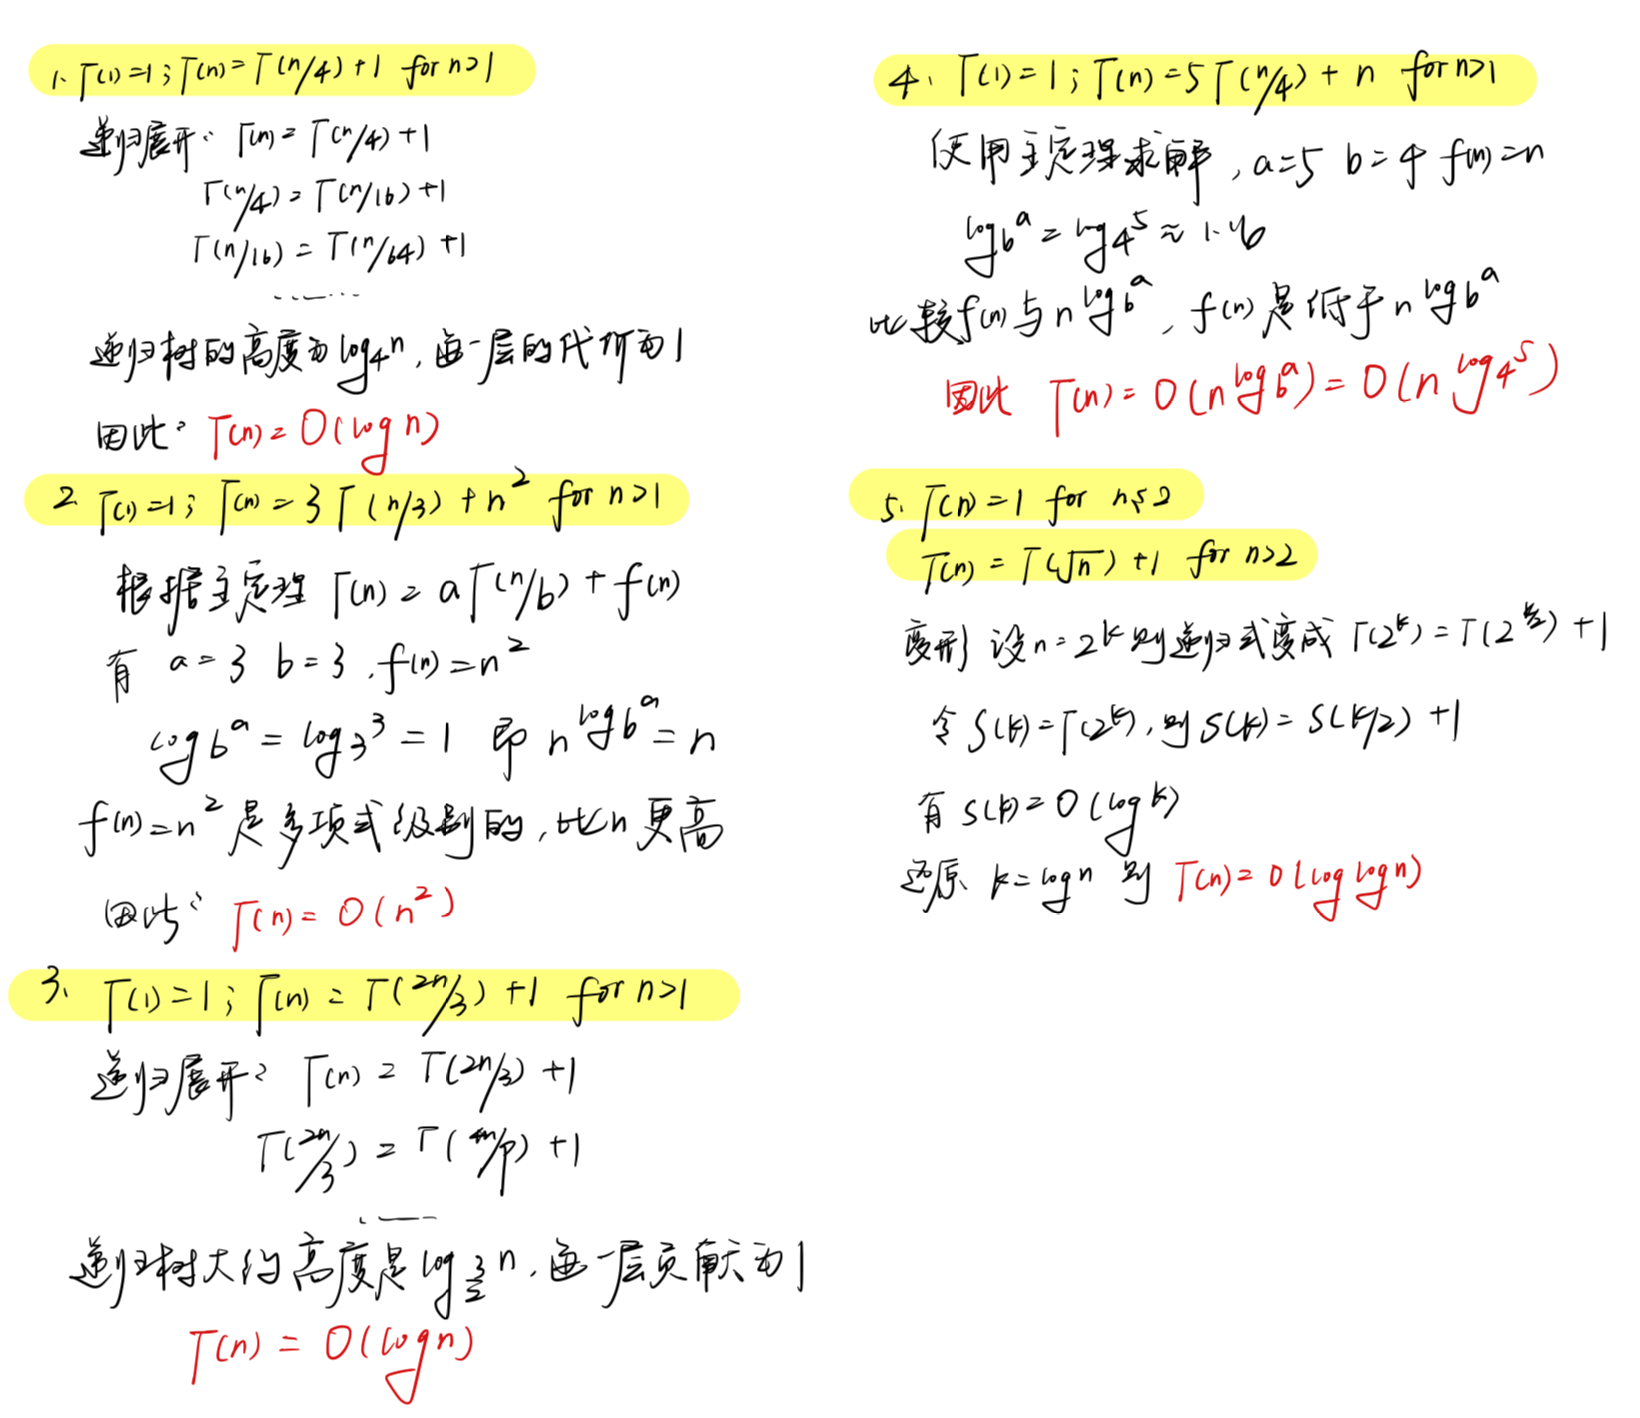 1. T(1)=1; T(n)=T(n/4)+1 for n>1
递归展开: T(n)=T(n/4)+1
T(n/4)=T(n/16)+1
T(n/16)=T(n/64)+1
......
递归树的高度为log₄n,每一层的代价为1
因此: T(n)=O(log n)
2. T(1)=1; T(n)=3T(n/3)+n² for n>1
根据主定理 T(n)=aT(n/b)+f(n)
有 a=3 b=3, f(n)=n²
log_b^a=log_3^3=1 即 n^{log_b^a}=n
f(n)=n²是多项式级别的,比n更高
因此: T(n)=O(n²)
3. T(1)=1; T(n)=T(2n/3)+1 for n>1
递归展开: T(n)=T(2n/3)+1
T(2n/3)=T(4n/9)+1
......
递归树大约高度是log_{3/2}n,每一层贡献为1
T(n)=O(log n)
4. T(1)=1; T(n)=5T(n/4)+n for n>1
使用主定理求解,a=5 b=4 f(n)=n
log_b^a=log_4^5≈1.16
比较f(n)与n^{log_b^a},f(n)是低于n^{log_b^a}
因此 T(n)=O(n^{log_b^a})=O(n^{log_4^5})
5. T(n)=1 for n≤2
T(n)=T(√n)+1 for n>2
变形 设n=2^k则递归式变成T(2^k)=T(2^{k/2})+1
令S(k)=T(2^k),则S(k)=S(k/2)+1
有S(k)=O(log k)
还原 k=log n 则 T(n)=O(log log n)